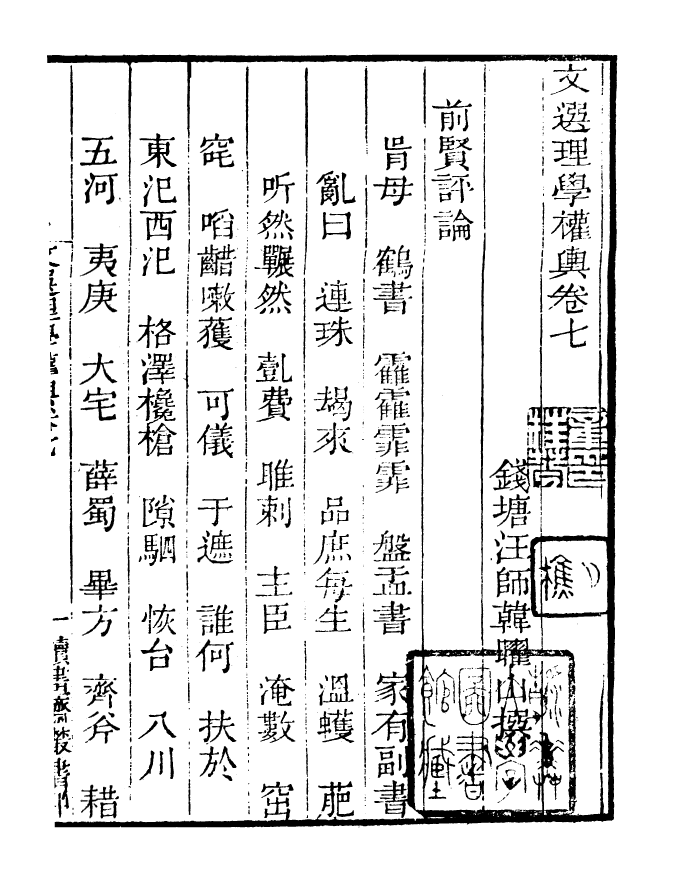 文選理學權輿卷七
錢塘汪師韓耀山撰
前賢評論
胥母 鶴書 靃靃霏霏 盤盂書 家有副書
亂曰 連珠 朅來 品庶每生 溫蠖 葩
听然囅然 㔽費 睢刺 主臣 淹數 窋
窋 啗齰嗽獲 可儀 于遮 誰何 扶於
東汜西汜 格澤欃槍 隙駟 恢台 八川
五河 夷庚 大宅 薛蜀 畢方 齊斧 耤
一 讀書齋叢書